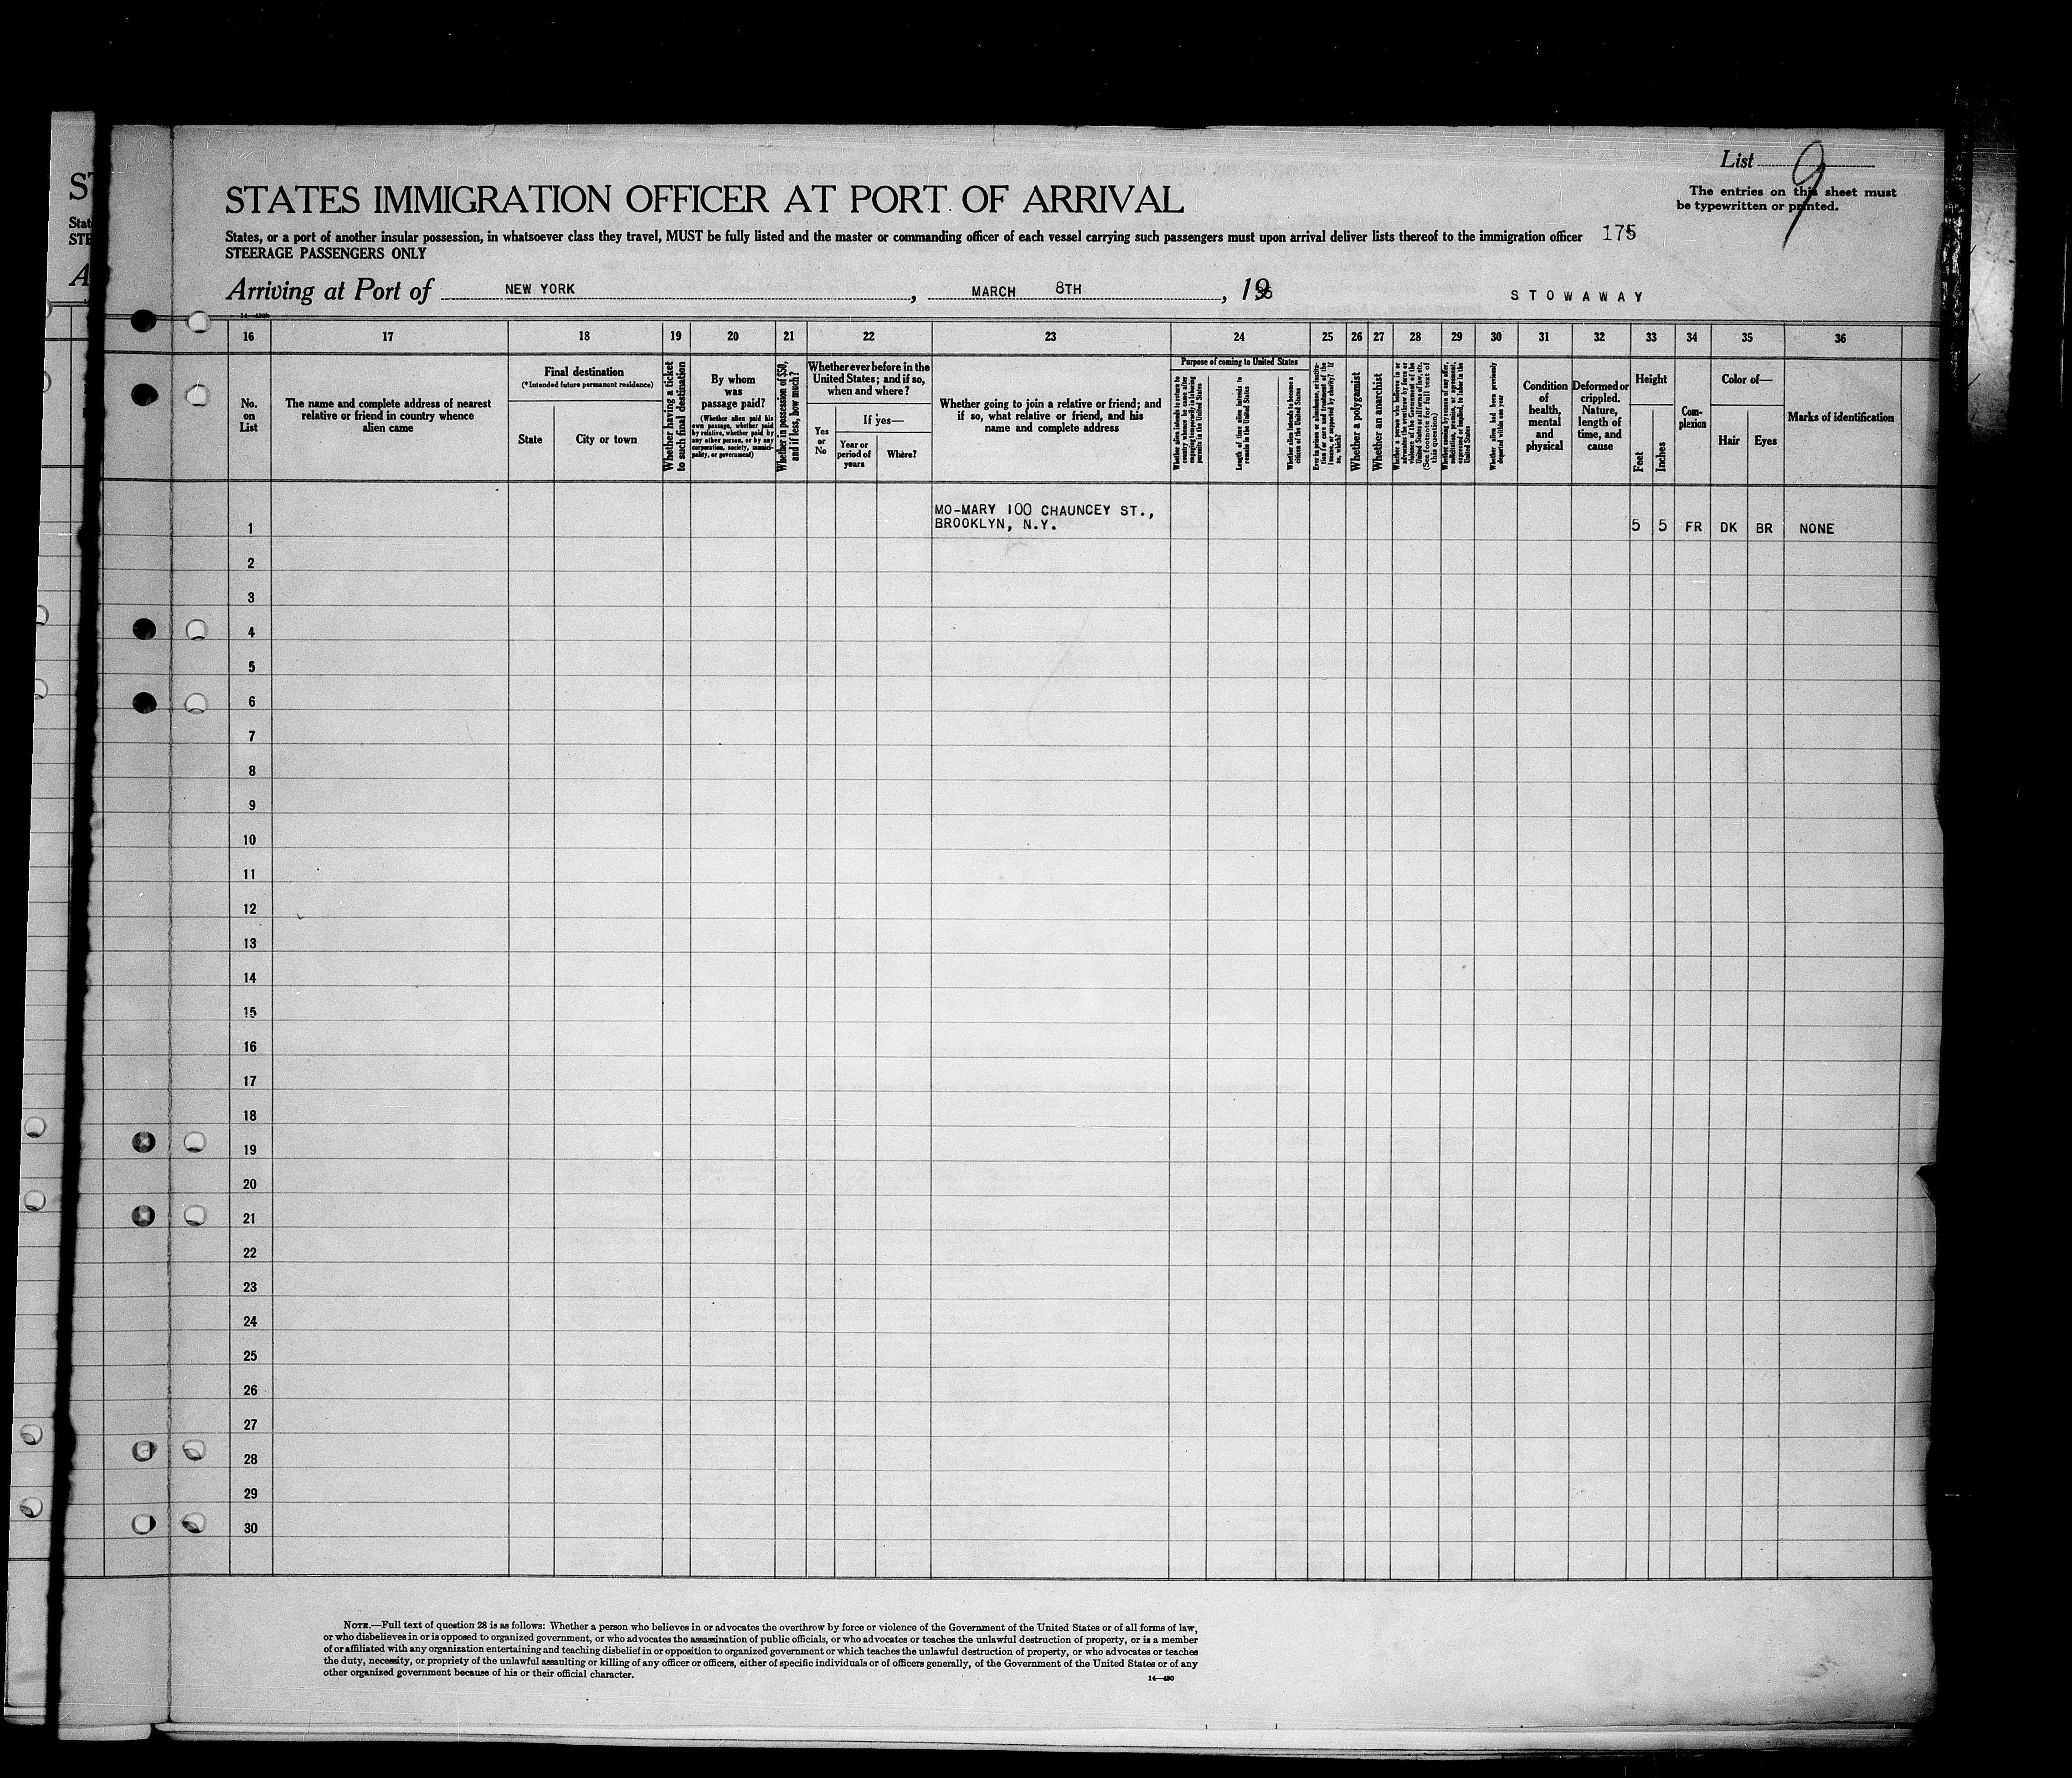 List 9
The entries on this sheet must
be typewritten or printed.
STATES IMMIGRATION OFFICER AT PORT OF ARRIVAL
States, or a port of another insular possession, in whatsoever class they travel, MUST be fully listed and the master or commanding officer of each vessel carrying such passengers must upon arrival deliver lists thereof to the immigration officer 175
STEERAGE PASSENGERS ONLY
Arriving at Port of NEW YORK, MARCH 8TH, 19
STOWAWAY
16 17 18 19 20 21 22 23 24 25 26 27 28 29 30 31 32 33 34 35 36
No.
on
List
The name and complete address of nearest
relative or friend in country whence
alien came
Final destination
(*Intended future permanent residence)
State
City or town
Whether having a ticket
to such final destination
By whom
was
passage paid?
(Whether alien paid his
own passage, whether paid
by relative, whether paid by
any other person, or by any
corporation, society, munici-
pality, or government)
Whether in possession of $50,
and if less, how much?
Whether ever before in the
United States; and if so,
when and where?
Yes
or
No
If yes—
Year or
period of
years
Where?
Whether going to join a relative or friend; and
if so, what relative or friend, and his
name and complete address
Purpose of coming to United States
Whether alien intends to return to
country whence he came after
engaging temporarily in laboring
pursuits in the United States
Length of time alien intends to
remain in the United States
Whether alien intends to become a
citizen of the United States
Ever in prison or almshouse, or institu-
tion for care and treatment of the
insane, or supported by charity? If
so, which?
Whether a polygamist
Whether an anarchist
Whether a person who believes in or
advocates the overthrow by force or
violence of the Government of the
United States or all forms of law, etc.
(See footnote for full text of
this question)
Whether coming by reason of any offer,
solicitation, promise, or agreement,
expressed or implied, to labor in the
United States
Whether alien had been previously
deported within one year
Condition
of
health,
mental
and
physical
Deformed or
crippled.
Nature,
length of
time, and
cause
Height
Feet
Inches
Com-
plexion
Color of—
Hair
Eyes
Marks of identification
MO-MARY 100 CHAUNCEY ST.,
BROOKLYN, N.Y.
1 5 5 FR DK BR NONE
2
3
4
5
6
7
8
9
10
11
12
13
14
15
16
17
18
19
20
21
22
23
24
25
26
27
28
29
30
NOTE.—Full text of question 28 is as follows: Whether a person who believes in or advocates the overthrow by force or violence of the Government of the United States or of all forms of law,
or who disbelieves in or is opposed to organized government, or who advocates the assassination of public officials, or who advocates or teaches the unlawful destruction of property, or is a member
of or affiliated with any organization entertaining and teaching disbelief in or opposition to organized government or which teaches the unlawful destruction of property, or who advocates or teaches
the duty, necessity, or propriety of the unlawful assaulting or killing of any officer or officers, either of specific individuals or of officers generally, of the Government of the United States or of any
other organized government because of his or their official character.
14—430